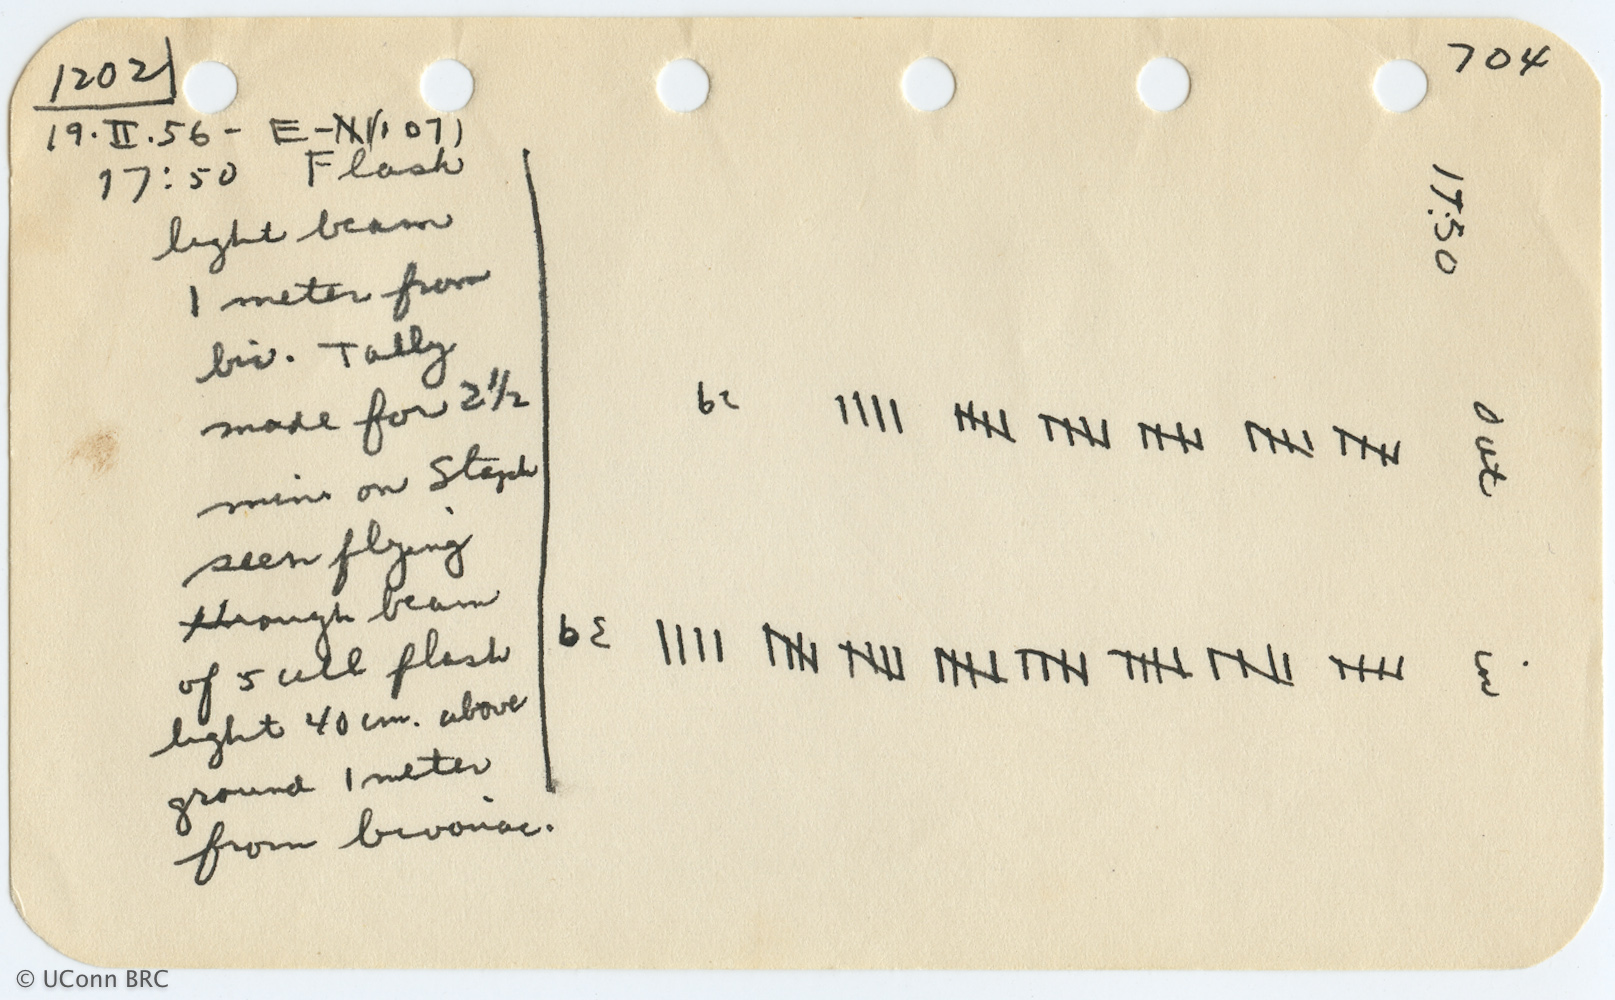 1202
704
19.II.56- E-N(1071)
17:50 Flash
light beam
1 meter from
biv. Tally
made for 2 1/2
min. on Staph
seen flying
through beam
of 5 cell flash
light 40 cm. above
ground 1 meter
from bivouac.
17:50
Out 卌 卌 卌 卌 卌 |||| 29
in 卌 卌 卌 卌 卌 卌 卌 |||| 39
© UConn BRC